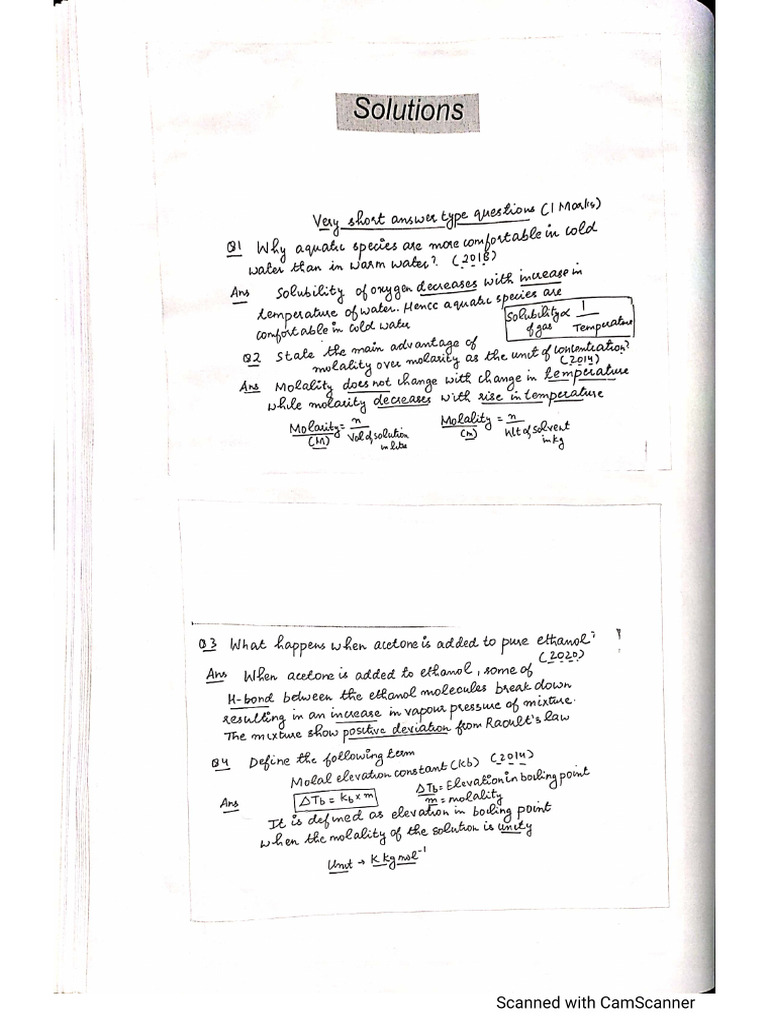 Solutions
Very short answer type questions (1 Marks)
Q1 Why aquatic species are more comfortable in cold
water than in warm water? (2018)
Ans Solubility of oxygen decreases with increase in
temperature of water. Hence aquatic species are
comfortable in cold water
Solubility ∝ 1
of gas Temperature
Q2 State the main advantage of
molality over molarity as the unit of concentration?
(2014)
Ans Molality does not change with change in temperature
while molarity decreases with rise in temperature
Molarity = n Molality = n
(M) Vol of solution (m) Wt of solvent
in litre in kg
Q3 What happens when acetone is added to pure ethanol?
(2020)
Ans When acetone is added to ethanol, some of
H-bond between the ethanol molecules break down
resulting in an increase in vapour pressure of mixture.
The mixture show positive deviation from Raoult's law
Q4 Define the following term
Molal elevation constant (kb) (2014)
Ans ΔTb = Kb × m ΔTb = Elevation in boiling point
m = molality
It is defined as elevation in boiling point
when the molality of the solution is unity
Unit → K kg mol⁻¹
Scanned with CamScanner